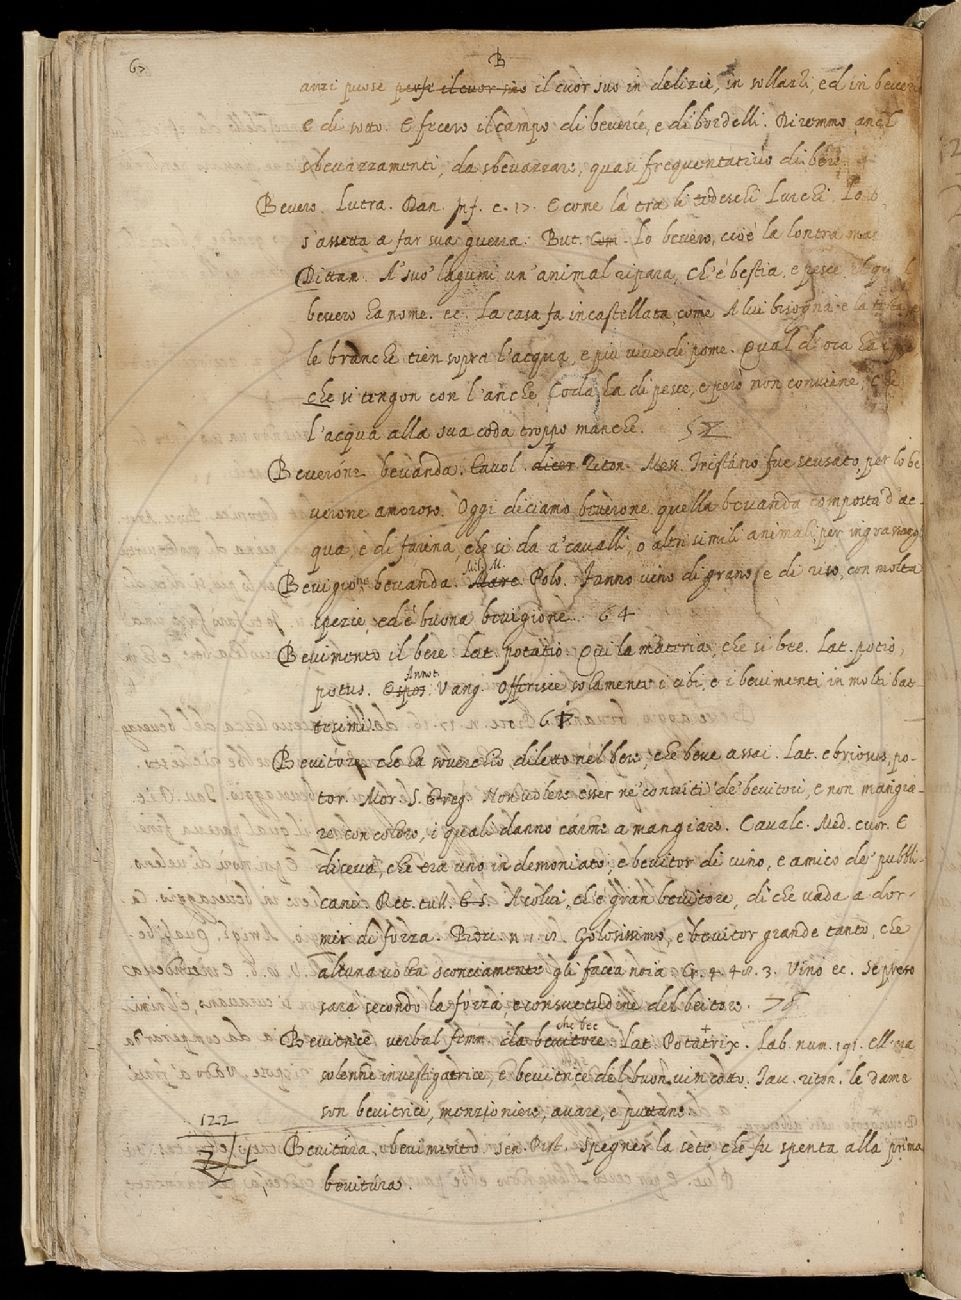 67
B
anzi puose perse il cuor suo il cuor suo in delizie, in sollazzi, ed in beveri
e di soto. E fecero il campo di beverie, e di bordelli. Diremmo anche
sbevazzamenti, da sbevazzare, quasi frequentativo di bere.
Bevero. Lutra. Dan. Inf. c. 17. E come là tra li tedeschi Lurchi. Lo b
s'assetta a far sua guerra. But. Com. Lo bevero, cioè la lontra
Dittam. A' suo' lagumi un'animal ripara, ch'è bestia, e pesce, il qu
bevero ha nome. ec. La casa fa incastellata, come A lui bisogna: e la testa, e
le branche tien sopra l'acqua, e più vive di pome. Qual d'oca ha i
che si tengon con l'anche, Coda ha di pesce, e però non conviene, Che
l'acqua alla sua coda troppo manche. 52
Beverone bevanda. Tavol. dicer. Riton. Mess. Tristano fue scusato per lo be-
verone amoroso. Oggi diciamo beverone quella bevanda composta d'ac-
qua, e di farina, che si da a' cavalli, o altri simili animali, per ingrassargli
Bevigione bevanda. Marc. Mil. M. Polo. Fanno vino di grano, e di riso, con molta
spezie, ed è buona bevigione. 64
Bevimento il bere. Lat. potatio. Qui la materia, che si bee. Lat. potio,
potus. Espos. Annot. Vang. Offerisce solamente i cibi, e i bevimenti in molti bat-
tesimi. 67
Bevitore, che ha soverchio diletto nel bere, che beve assai. Lat. ebriosus, po-
tor. Mor. S. Greg. Non volere esser ne' conviti de' bevitori, e non mangia-
re con coloro, i quali danno carne a mangiare. Cavalc. Med. cuor. E
diceva, che era uno indemoniato, e bevitor di vino, e amico de' pubbli-
cani. Ret. tull. G. S. A colui, ch'è gran bevitore, dì che vada a dor-
mir di forza. Bocc. n. Golosissimo, e bevitor grande tanto, che
alcuna volta sconciamente gli facea noia. Cr. 4. 48. 3. Vino ec. Se preso
sarà secondo la forza, e consuetudine del bevitore. 75
Bevitrice, verbal femm. da bevitore che bee Lat. Potatrix. Lab. num. 191. Ell'era
solenne investigatrice, e bevitrice del buon vin cotto. Tav. riton. le dame
son bevitrice, monzioniere, avare, e puttane.
122
Bevitura, bevimento Sen. Pist. Spegner la sete che fu spenta alla prima
bevitura.